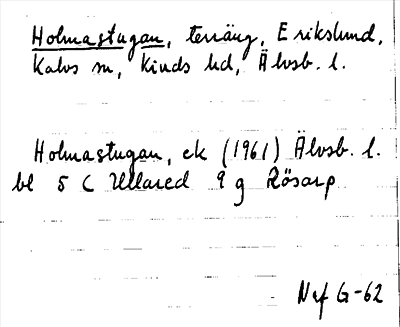 Holmastugan, terräng, Erikslund,
Kalvs sn, Kinds hd, Älvsb. l.
Holmastugan, ek (1961) Älvsb. l.
bl 5 C Ullared 9 g Rösarp
Nef G-62